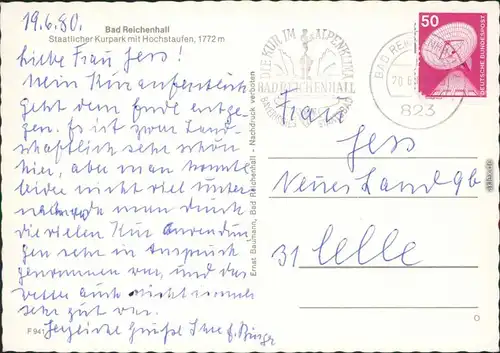 19.6.80.
Bad Reichenhall
Staatlicher Kurpark mit Hochstaufen, 1772 m
Liebe Frau Jess!
Mein Kuraufenthalt
geht dem Ende entge-
gen. Es ist zwar Land-
schaftlich sehr schön
hier, aber man konnte
leider nicht viel unter-
nehmen man durch
die vielen Kur Anwendun-
gen sehr in Anspruch
genommen war, und das
Wetter auch nicht immer
sehr gut war.
Herzliche Grüße Ihre
F 941
Ernst Baumann, Bad Reichenhall - Nachdruck verboten
DIE KUR IM ALPENKLIMA
BAD REICHENHALL
BAD REI
20.6
823
50
DEUTSCHE BUNDESPOST
Frau
Jess
Neues Land 96
31 Celle